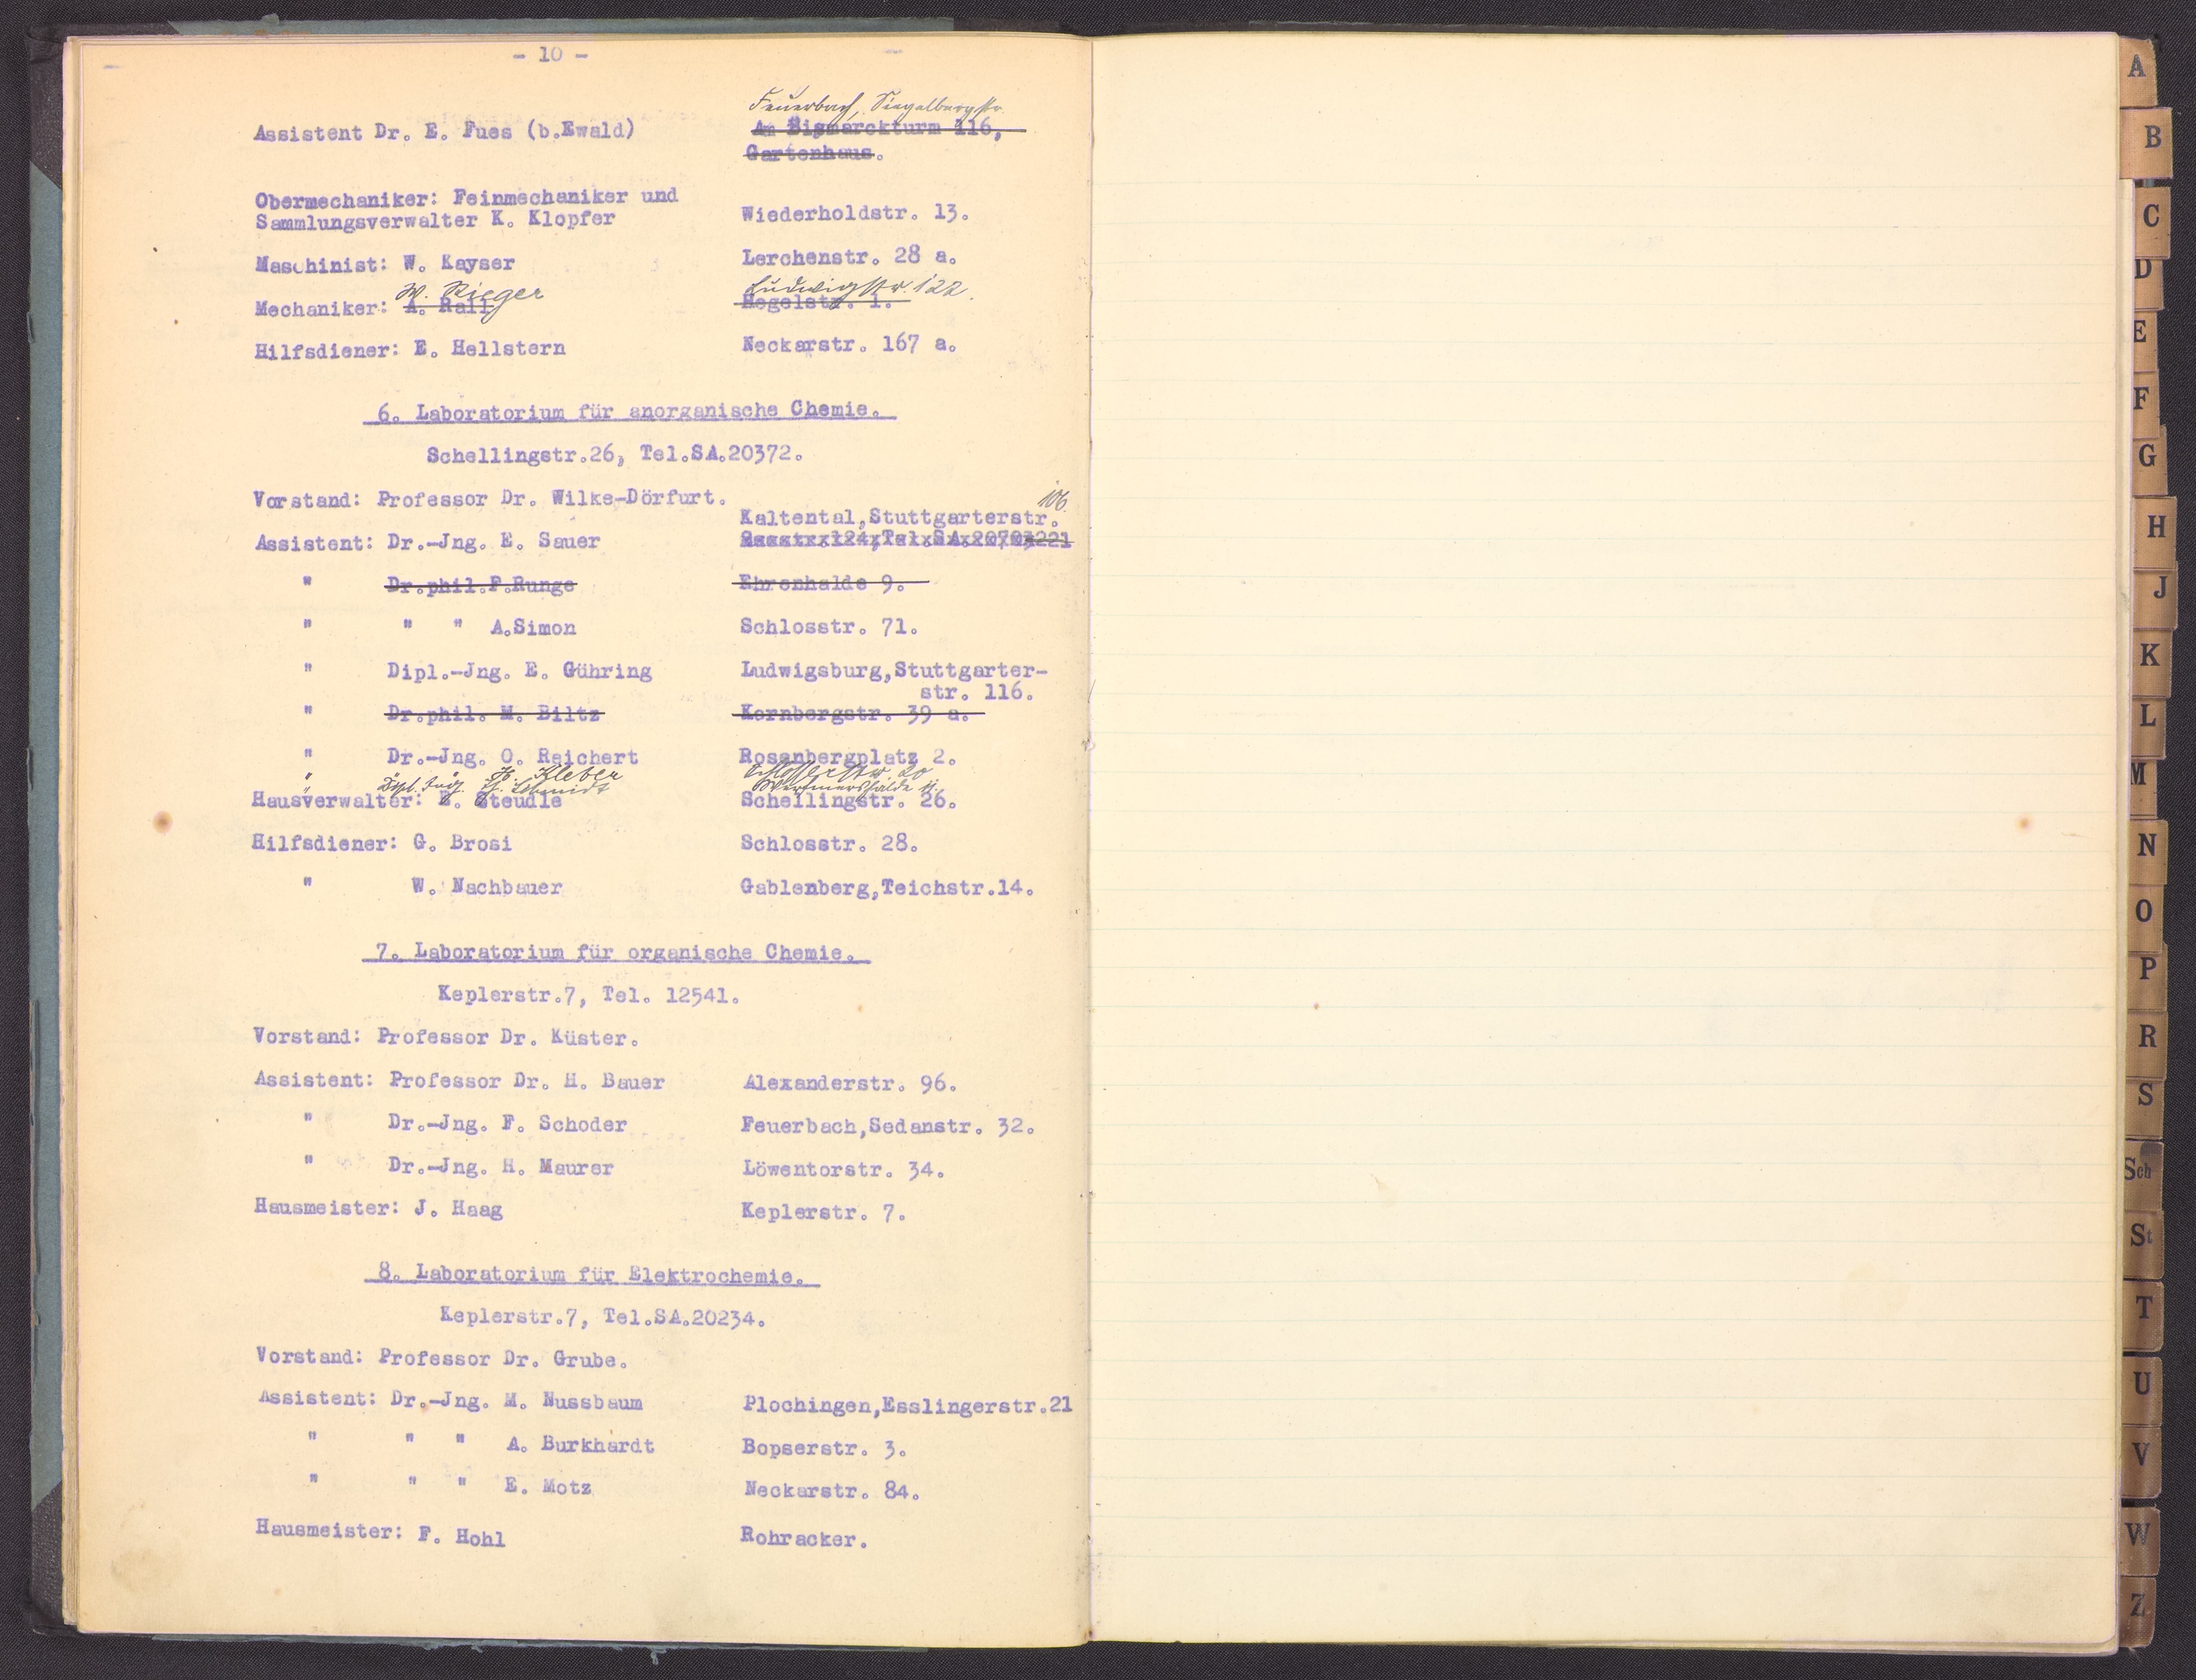 - 10 -
Feuerbach, Siegelbergstr.
Assistent Dr. E. Fues (b.Ewald) Am Bismarckturm 116,
Gartenhaus.
Obermechaniker: Feinmechaniker und
Sammlungsverwalter K. Klopfer Wiederholdstr. 13.
Maschinist: W. Kayser Lerchenstr. 28 a.
W. Rieger Ludwigstr. 122.
Mechaniker: A. Rail Hegelstr. 1.
Hilfsdiener: E. Hellstern Neckarstr. 167 a.
6. Laboratorium für anorganische Chemie.
Schellingstr.26, Tel.SA.20372.
Vorstand: Professor Dr. Wilke-Dörfurt.
106.
Kaltental,Stuttgarterstr.
Assistent: Dr.-Jng. E. Sauer
" Dr.phil.P.Runge Ehrenhalde 9.
" " " A.Simon Schlosstr. 71.
" Dipl.-Jng. E. Gühring Ludwigsburg,Stuttgarter-
str. 116.
" Dr.phil. M. Biltz Kornbergstr. 39 a.
" Dr.-Jng. O. Reichert Rosenbergplatz 2.
" Kleber Schlosserstr. 20
" Dipl. Ing. Schmidt
Hausverwalter: E. Steudle Schellingstr. 26.
Hilfsdiener: G. Brosi Schlosstr. 28.
" W. Nachbauer Gablenberg,Teichstr.14.
7. Laboratorium für organische Chemie.
Keplerstr.7, Tel. 12541.
Vorstand: Professor Dr. Küster.
Assistent: Professor Dr. H. Bauer Alexanderstr. 96.
" Dr.-Jng. F. Schoder Feuerbach,Sedanstr. 32.
" Dr.-Jng. H. Maurer Löwentorstr. 34.
Hausmeister: J. Haag Keplerstr. 7.
8. Laboratorium für Elektrochemie.
Keplerstr.7, Tel.SA.20234.
Vorstand: Professor Dr. Grube.
Assistent: Dr.-Jng. M. Nussbaum Plochingen,Esslingerstr.21
" " " A. Burkhardt Bopserstr. 3.
" " " E. Motz Neckarstr. 84.
Hausmeister: F. Hohl Rohracker.
A
B
C
D
E
F
G
H
J
K
L
M
N
O
P
R
S
Sch
St
T
U
V
W
Z